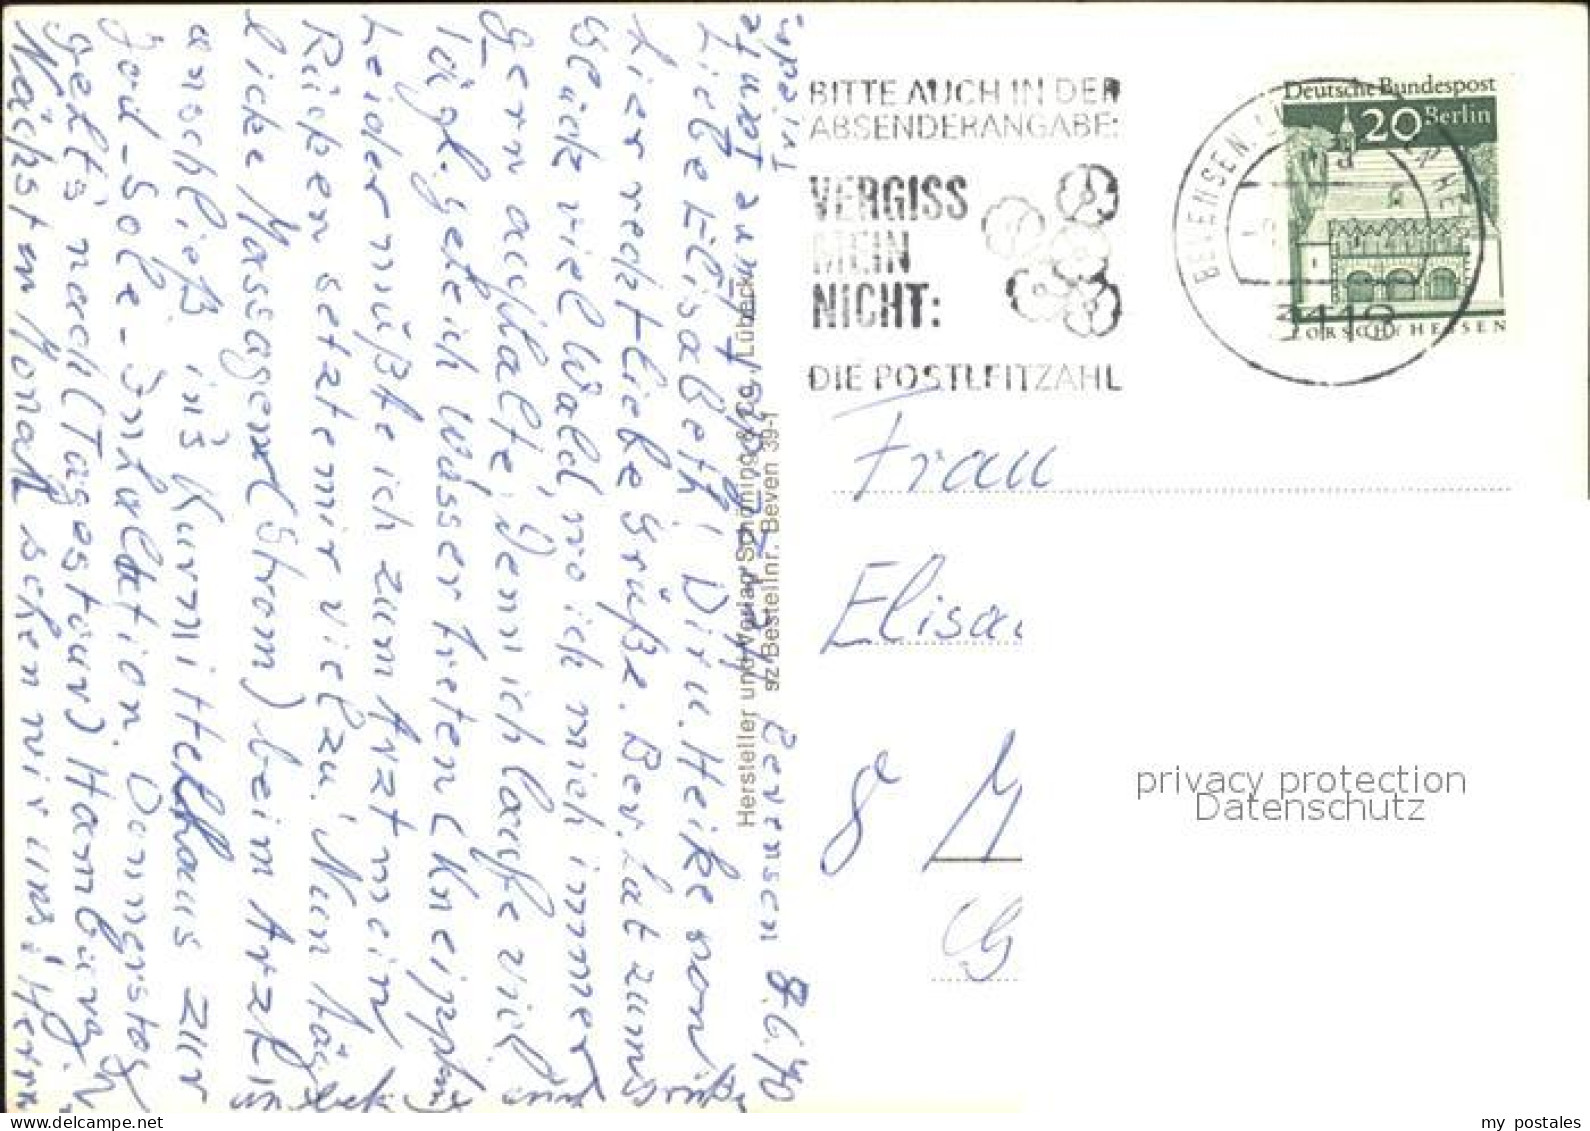 Bevensen 8.6.70
Liebe Elisabeth! Dir u. Heike von
hier recht liebe Grüße. Bev. hat zum
Glück viel Wald, wo ich mich immer
gern aufhalte. Denn ich laufe viel.
Tägl. gehe ich Wassertreten (Kneipp)
Leider müßte ich zum Arzt mein
Rücken setzte mir viel zu. Nun täg
liche Massagen (Strom) beim Arzt
anschließ ins Kurmittelhaus zur
Jod-Sole-Inhalation. Donnerstag
geht's nach (Tagestour) Hamburg.
Nächsten Monat sehen wir uns!
Hersteller und Verlag Schöning & Co., Lübeck
sz Bestellnr. Beven 39-1
BITTE AUCH IN DER
ABSENDERANGABE:
VERGISS
MEIN
NICHT:
DIE POSTLEITZAHL
Deutsche Bundespost
20 Berlin
LORSCH/HESSEN
BEVENSEN
3118
Frau
Elisa
8 M
G
privacy protection
Datenschutz
my_postales